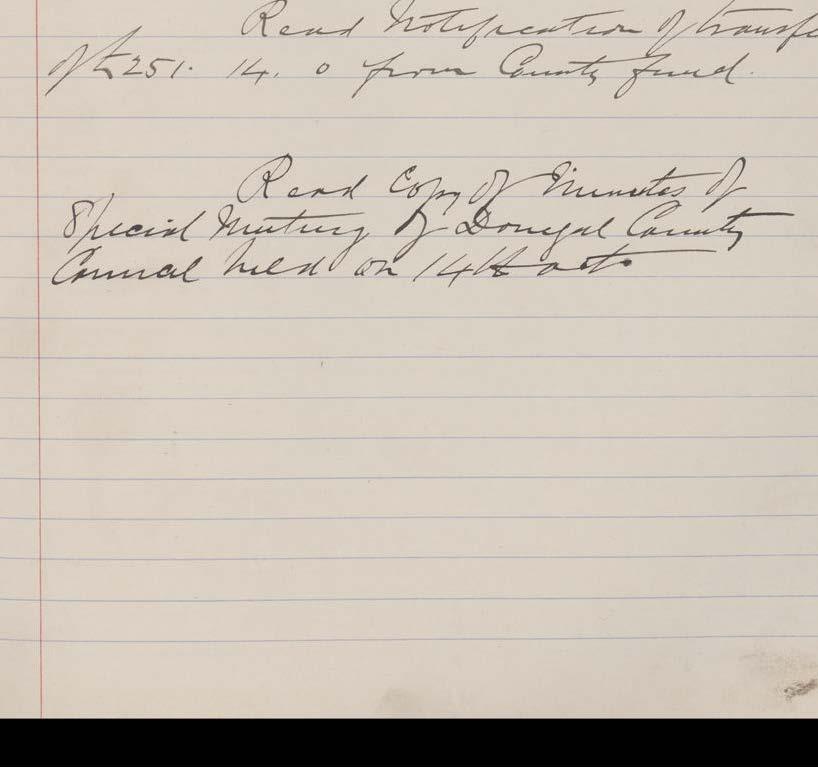 Read Notification of transfe
of £251. 14. 0 from County fund.
Read Copy of Minutes of
Special Meeting of Donegal County
Council held on 14th octr